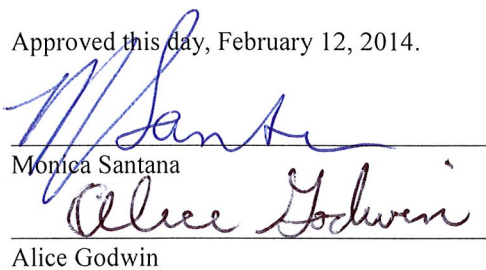 Approved this day, February 12, 2014.
M Santana
Monica Santana
Alice Godwin
Alice Godwin